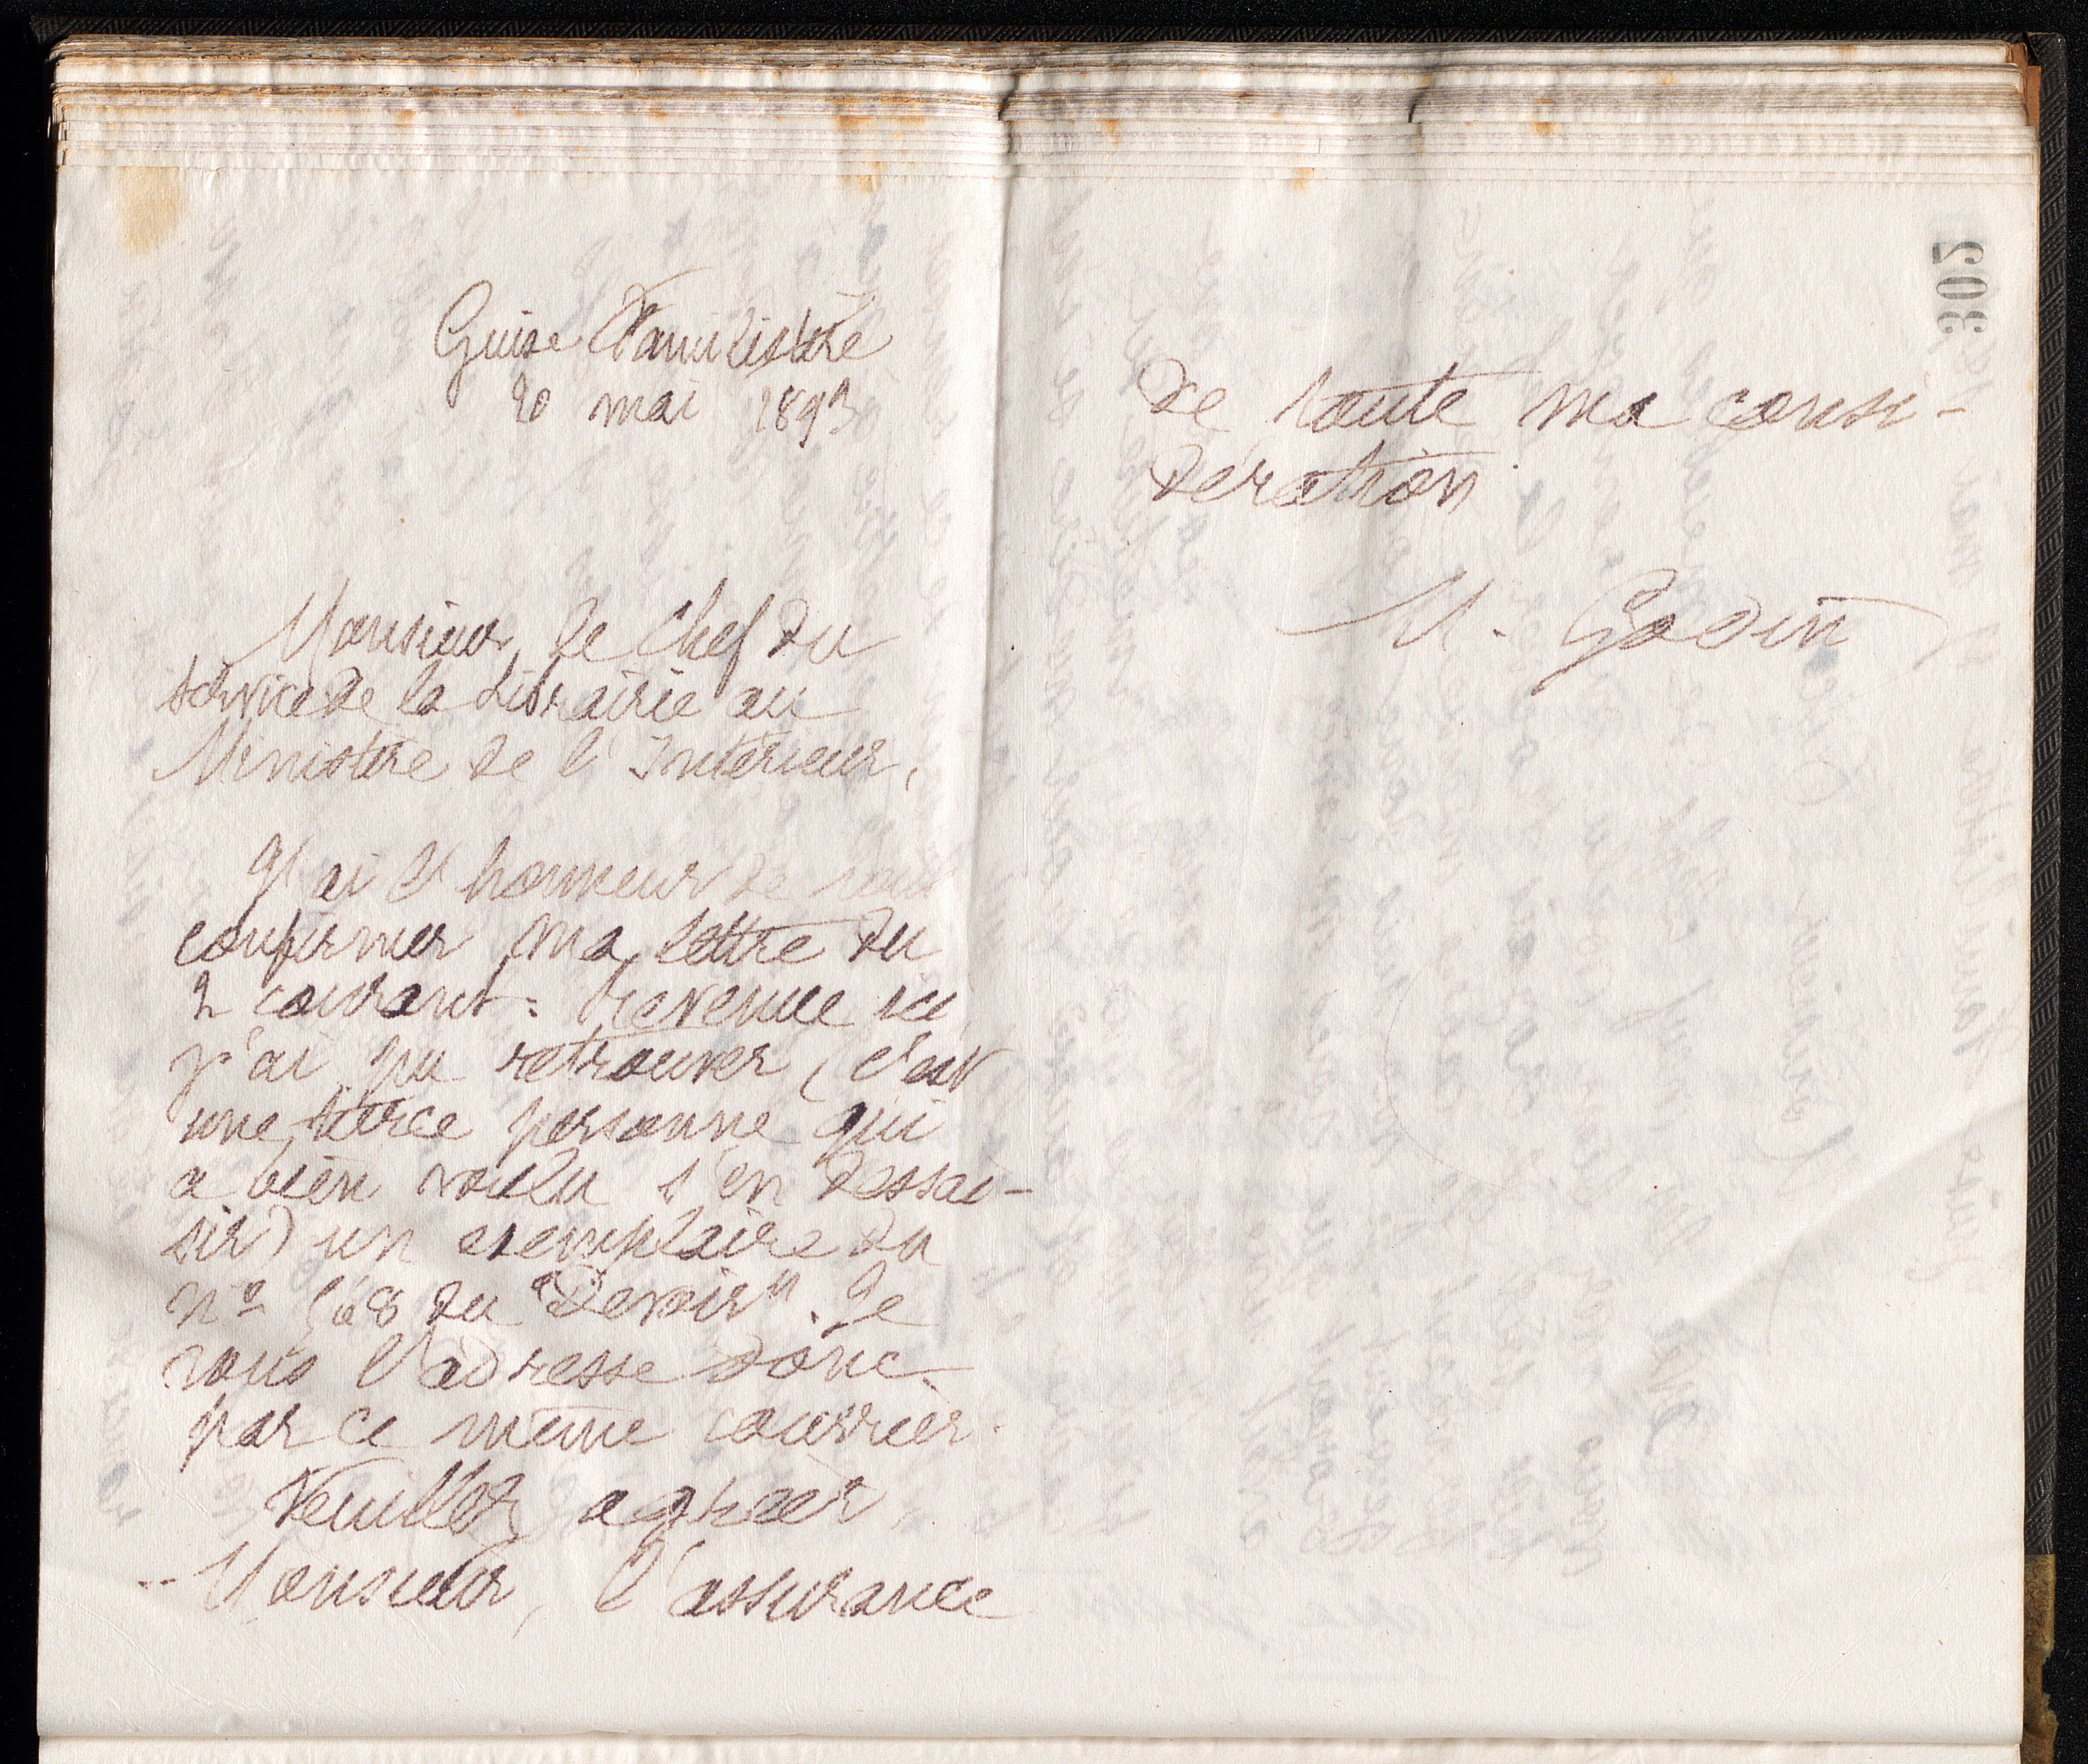 Guise Familistère
20 mai 1893
Monsieur le Chef du
service de la Librairie au
Ministère de l'Intérieur,
J'ai l'honneur de vous
confirmer ma lettre du
2 courant : Revenue ici
j'ai pu retrouver (c'est
une tierce personne qui
a bien voulu s'en dessai-
sir) un exemplaire du
nº du "Devoir". Je
vous l'adresse donc
par ce même courrier.
Veuillez agréer,
Monsieur, l'assurance
de toute ma consi-
dération
M. Godin
305